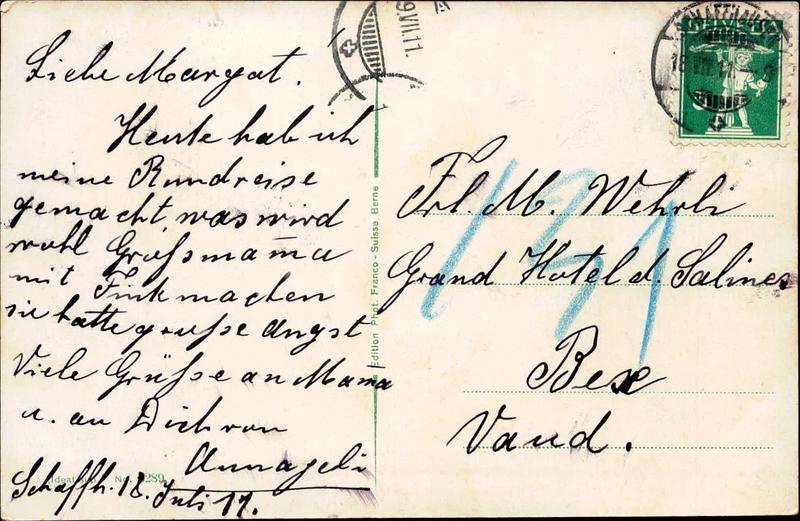 Liebe Margat.
Heute hab ich
meine Rundreise
gemacht, was wird
wohl Großmama
mit Fink machen
sie hatte große Angst
Viele Grüße an Mama
u. an Dich von
Annageli
Schaffh. 18. Juli 11.
Edition Phot. Franco-Suisse Berne
No. 3289
9.VII.11.
SCHAFFHAUSEN
18.VII.11.
HELVETIA
131
Frl. M. Wehrli
Grand Hotel d. Salines
Bex
Vaud.